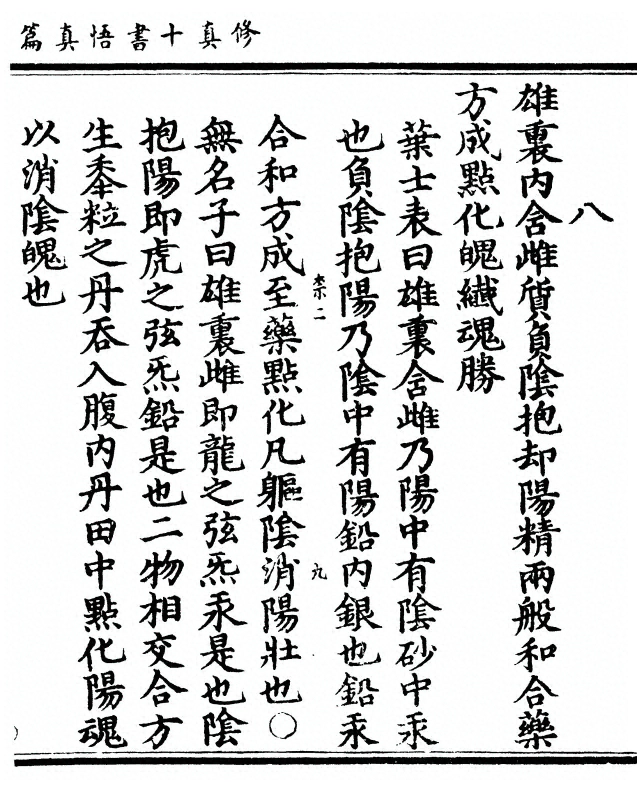 修真十書悟真篇
八
雄裏内含雌質負陰抱却陽精兩般和合藥
方成點化魄纖魂勝
葉士表曰雄裏含雌乃陽中有陰砂中汞
也負陰抱陽乃陰中有陽鉛内銀也鉛汞
柰二
九
合和方成至藥點化凡軀陰消陽壯也〇
無名子曰雄裏雌即龍之弦炁汞是也陰
抱陽即虎之弦炁鉛是也二物相交合方
生黍粒之丹吞入腹内丹田中點化陽魂
以消陰魄也